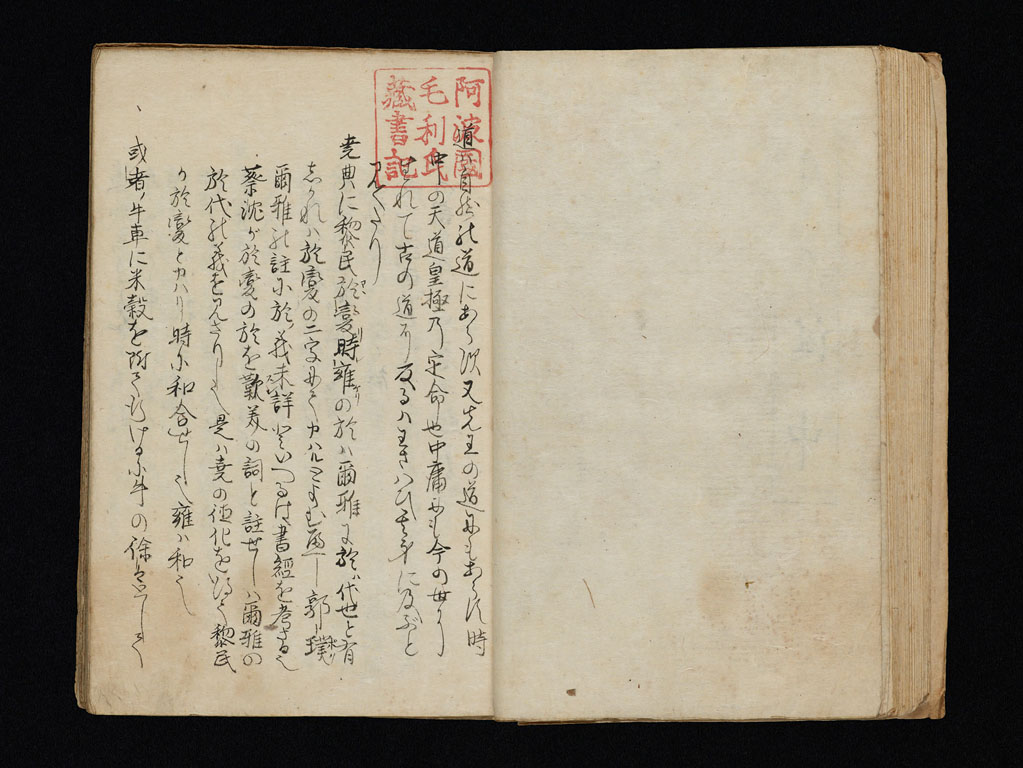 阿波國
毛利氏
藏書記
道は自然の道にあらず又先王の道にもあらず時
中の天道皇極乃定命也中庸にも今の世に
生れて古の道に反るハわさはひ其身に及ぶと
見へたり
堯典に黎民於變時雍の於ハ爾雅に於ハ代也と有
しかれハ於變の二字にてカハルとよむべし郭璞
爾雅の註に於義未詳といへるは書經を考さる也
蔡沈か於變の於を歎美の詞と註せしハ爾雅の
於代の義を見さりし也是ハ堯の徳化を以て黎民
か於變とカハリ時に和合せし也雍ハ和也
或者牛車に米穀を附て行ける に牛の